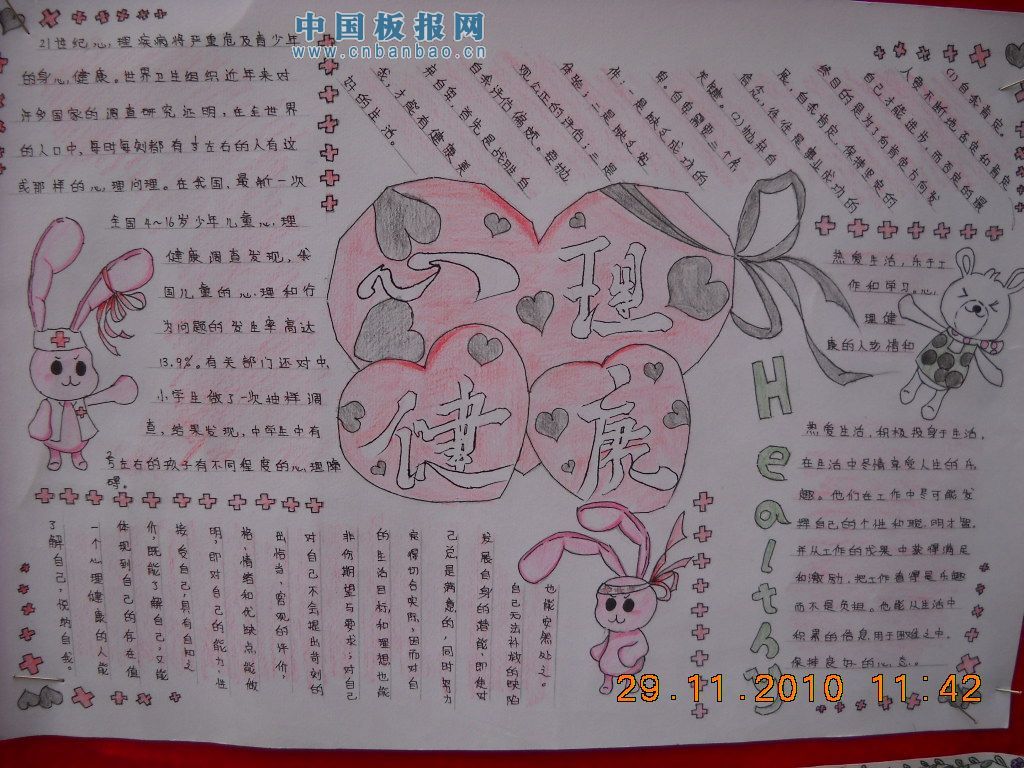 中国板报网
www.cnbanbao.cn
21世纪心理疾病将严重危及青少年
的身心健康。世界卫生组织近年来对
许多国家的调查研究证明，在全世界
的人口中，每时每刻都有 左右的人有这
或那样的心理问理。在我国、最新一次
全国4~16岁少年儿童心理
健康调查发现，我
国儿童的心理和行
为问题的发生率高达
13.9%。有关部门还对中、
小学生做了一次抽样调
查，结果发现，中学生中有
左右的孩子有不同程度的心理障
碍。
心理
健康
Healthy
(1)自我肯定。
人要不断地否定和肯定
自己才能进步，而否定的最
终目的是为了向肯定方向发
展，自我肯定，保持坚定的
信念，往往是事业成功的
关键。(2)勉抛自
卑。自卑需要三个条
件：一是缺乏成功的
体验；二是缺乏客
观公正的评估；三是
自我评估偏颇。要抛
弃自卑，首先是战胜自
我，才能有健康美
好的生活。
热爱生活，乐于工
作和学习。心
理健
康的人珍惜和
热爱生活，积极投身于生活，
在生活中尽情享受人生的乐
趣。他们在工作中尽可能发
挥自己的个性和聪明才智，
并从工作的成果中获得满足
和激励，把工作看得是乐趣
而不是负担。他能从生活中
积累的信息用于困难之中，
保持良好的心态。
了解自己，悦纳自我。
一个心理健康的人能
体现到自己的存在价值
价，既能了解自己，又能
接受自己，具有自知之
明，即对自己的能力、性
格、情绪和优缺点，能做
出恰当、客观的评价，
对自己不会提出苛刻的
非份期望与要求；对自己
的生活目标和理想也能
定得切合实际，因而对自
己总是满意的，同时，努力
发展自身的潜能，即使对
自己无法补救的缺陷
也能安然处之。
29.11.2010 11:42